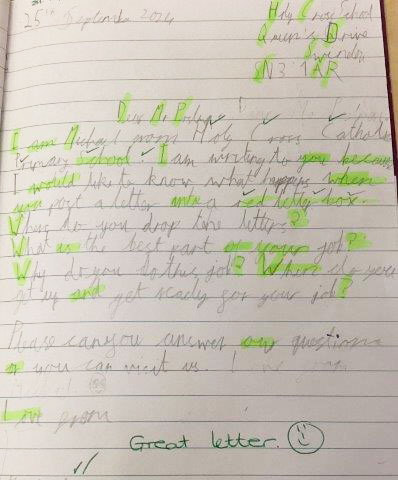 25th September 2024
Holy Cross School
Queen's Drive
Swindon
SN3 1AR
Dear Mr Postman
I am Michael from Holy Cross Catholic
Primary School. I am writing to you because
I would like to know what happens when
you post a letter into a red letter box.
do you drop the letters?
What is the best part of your job?
Why do you do this job? When do you
get up and get ready for your job?
Please can you answer our questions
or you can visit us. Love from
Love from
Great letter.